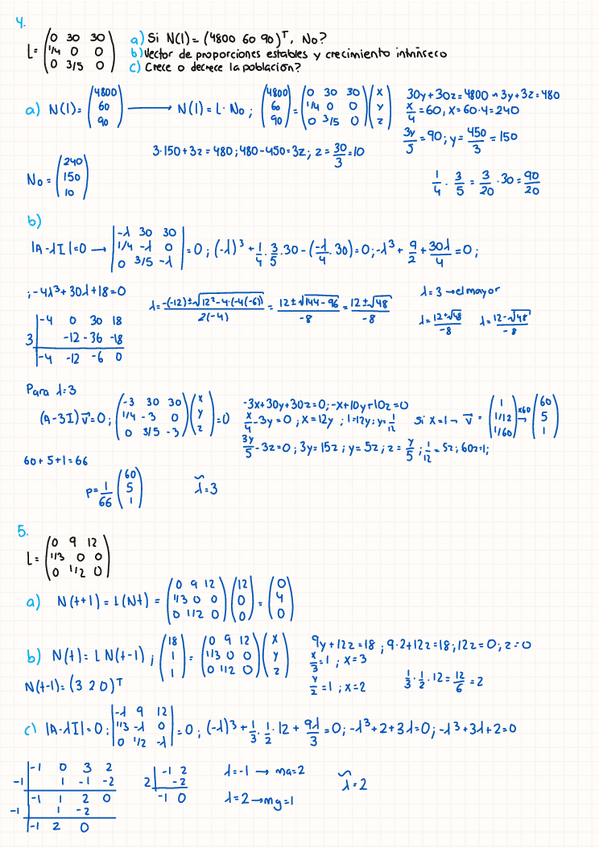 4.
L = (0 30 30; 1/4 0 0; 0 3/5 0)
a) Si N(1) = (4800 60 90)ᵀ, N₀?
b) Vector de proporciones estables y crecimiento intrínseco
c) Crece o decrece la población?
a) N(1) = (4800; 60; 90) → N(1) = L · N₀ ; (4800; 60; 90) = (0 30 30; 1/4 0 0; 0 3/5 0)(x; y; z)
30y + 30z = 4800 → 3y + 3z = 480
x/4 = 60, x = 60·4 = 240
3y/5 = 90 ; y = 450/3 = 150
3·150 + 3z = 480 ; 480 - 450 = 3z ; z = 30/3 = 10
N₀ = (240; 150; 10)
1/4 · 3/5 = 3/20 · 30 = 90/20
b)
|A - λI| = 0 → |-λ 30 30; 1/4 -λ 0; 0 3/5 -λ| = 0 ; (-λ)³ + 1/4 · 3/5 · 30 - (-λ/4 · 30) = 0 ; -λ³ + 9/2 + 30λ/4 = 0 ;
; -4λ³ + 30λ + 18 = 0
λ = -(-12) ± √12² - 4·(-4(-6)) / 2(-4) = 12 ± √144 - 96 / -8 = 12 ± √48 / -8
λ = 3 → el mayor
λ = 12 + √48 / -8 λ = 12 - √48 / -8
-4 0 30 18
3 -12 -36 -18
-4 -12 -6 0
Para λ = 3
(A - 3I) v⃗ = 0 ; (-3 30 30; 1/4 -3 0; 0 3/5 -3)(x; y; z) = 0
-3x + 30y + 30z = 0 ; -x + 10y + 10z = 0
x/4 - 3y = 0 ; x = 12y ; 1 = 12y ; y = 1/12
3y/5 - 3z = 0 ; 3y = 15z ; y = 5z ; z = y/5 ; 1/12 = 5z ; 60z = 1 ;
si x = 1 → v⃗ = (1; 1/12; 1/60) x60 → (60; 5; 1)
60 + 5 + 1 = 66
p = 1/66 (60; 5; 1) λ̃ = 3
5.
L = (0 9 12; 1/3 0 0; 0 1/2 0)
a) N(t+1) = L(Nt) = (0 9 12; 1/3 0 0; 0 1/2 0)(12; 0; 0) = (0; 4; 0)
b) N(t) = L N(t-1) ; (18; 1; 1) = (0 9 12; 1/3 0 0; 0 1/2 0)(x; y; z)
9y + 12z = 18 ; 9·2 + 12z = 18 ; 12z = 0 ; z = 0
x/3 = 1 ; x = 3
y/2 = 1 ; x = 2
1/3 · 1/2 · 12 = 12/6 = 2
N(t-1) = (3 2 0)ᵀ
c) |A - λI| = 0 ; |-λ 9 12; 1/3 -λ 0; 0 1/2 -λ| = 0 ; (-λ)³ + 1/3 · 1/2 · 12 + 9λ/3 = 0 ; -λ³ + 2 + 3λ = 0 ; -λ³ + 3λ + 2 = 0
-1 0 3 2
-1 1 -1 -2
-1 1 2 0
-1 1 -2
-1 2 0
-1 2
2 -2
-1 0
λ = -1 → ma = 2
λ = 2 → mg = 1
λ̃ = 2